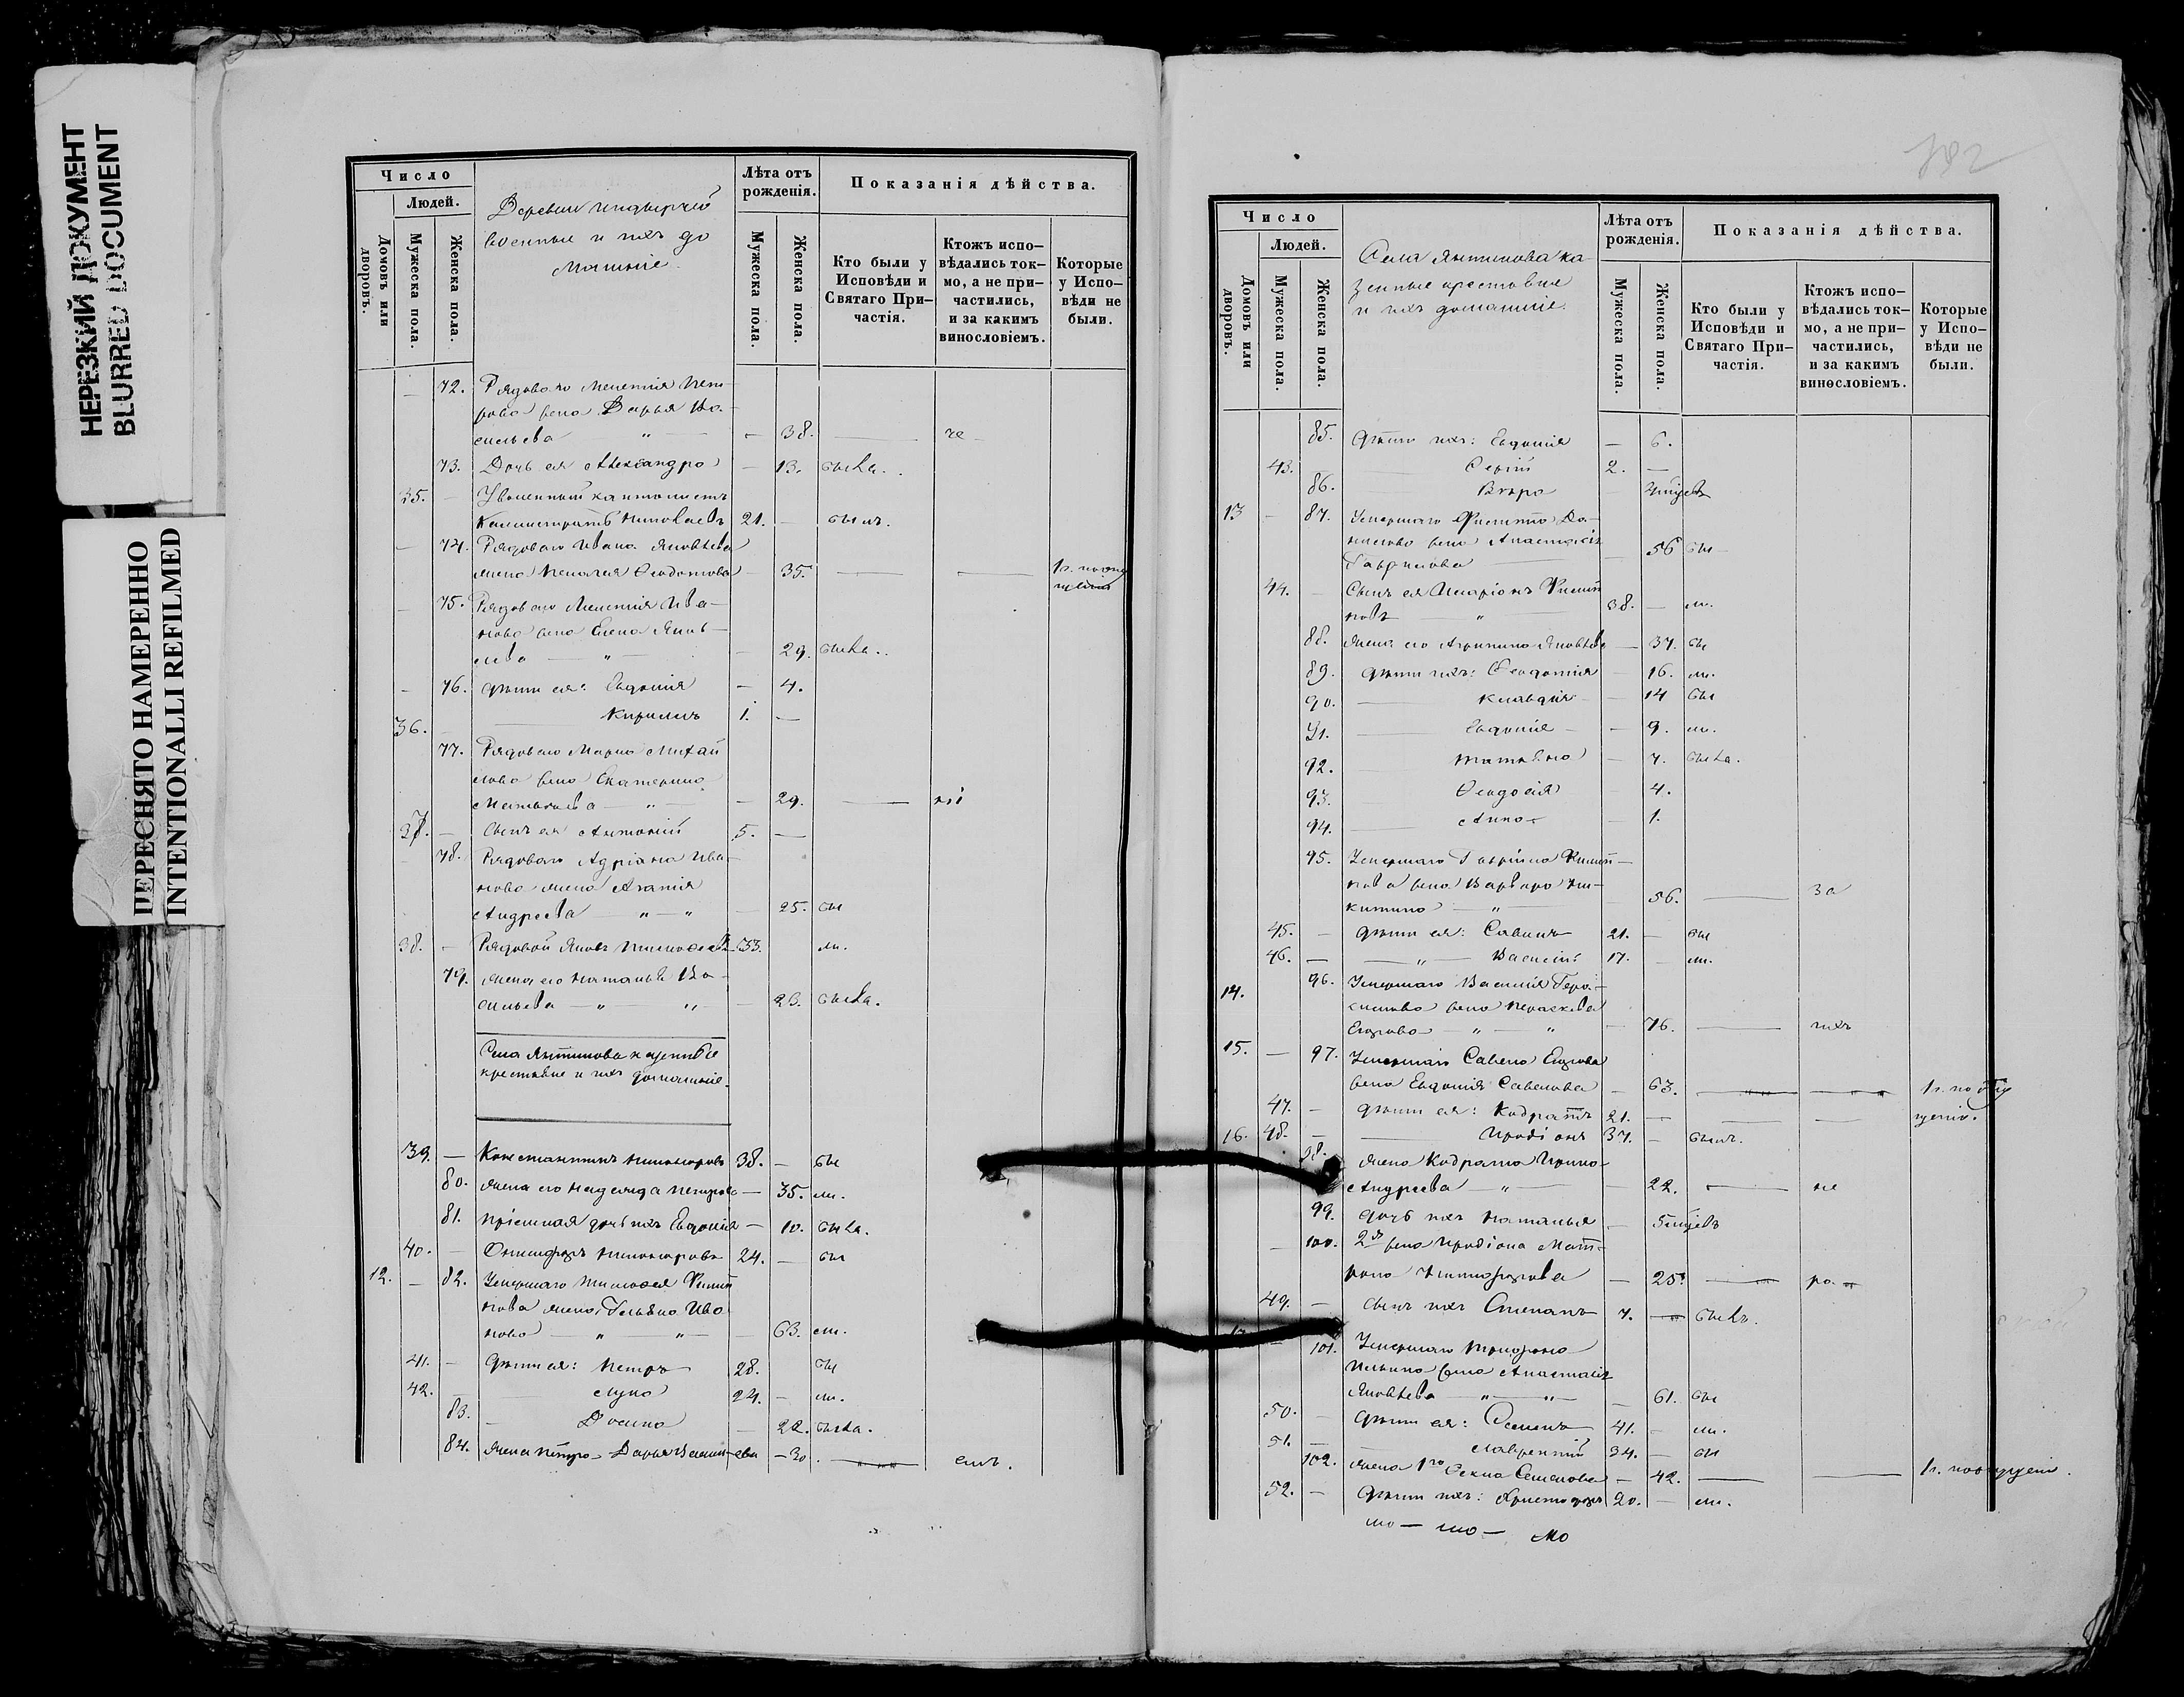 НЕРЕЗКИЙ ДОКУМЕНТ
BLURRED DOCUMENT
ПЕРЕСНЯТО НАМЕРЕННО
INTENTIONALLI REFILMED
Число
Людей.
Домовъ или дворовъ.
Мужеска пола.
Женска пола.
Деревни
военные и ихъ до
машніе.
Лѣта отъ рожденія.
Мужеска пола.
Женска пола.
Показанія дѣйства.
Кто были у Исповѣди и Святаго Причастія.
Ктожъ исповѣдались токмо, а не причастились, и за какимъ винословіемъ.
Которые у Исповѣди не были.
72. Рядоваго Мелетія Пет
рова жена Дарья Ва
сильева — " — 38. — не
73. Дочь ея Александра — 13. была.
35. — Уволенный кантонистъ
Каллистратъ Николаевъ 21. — былъ.
74. Рядоваго Ивана Яковлева
жена Пелагея Ѳедотова — 35. — —
75. Рядоваго Мелетія Ива—
нова жена Елена Яков—
лева — " — 29. была.
76. Дѣти ея: Евдокія — 4.
36. — Кириллъ 1. —
77. Рядоваго Марка Михай
лова жена Екатерина
Матвѣева — " — 29. —
37. — Сынъ ея Антоній 5. —
78. Рядоваго Адріана Ива—
нова жена Агапія
Андреева — " — " — 25. бы
38. — Рядовой Яковъ Тимофеевъ 33. ли.
79. Жена его Наталья Ва—
сильева — " " — 23. была.
Села Янтикова казенные
крестьяне и ихъ домашніе.
39. — Константинъ Никифоровъ 38. — бы
80. Жена его Надежда Петрова — 35. ли.
81. Пріемная дочь ихъ Евдокія — 10. была.
40. — Никифоровъ 24. — бы
12. — 82. Умершаго Тимофея Филип
пова жена Ива
нова — " — " — 63. ли.
41. — Дѣти ея: Петръ 28. бы
42. — Лука 24. — ли.
83. — 22. была.
84. Жена Петра — Дарья Васильева — 30. —
782
Число
Людей.
Домовъ или дворовъ.
Мужеска пола.
Женска пола.
Села Янтикова ка
зенные крестьяне
и ихъ домашніе.
Лѣта отъ рожденія.
Мужеска пола.
Женска пола.
Показанія дѣйства.
Кто были у Исповѣди и Святаго Причастія.
Ктожъ исповѣдались токмо, а не причастились, и за какимъ винословіемъ.
Которые у Исповѣди не были.
85. Дѣти ихъ: Евдокія — 6.
43. — Сергій 2. —
86. Вѣра
13 — 87. Умершаго Филиппа Да—
нилова жена Анастасія
Гаврилова — 56 бы
44. — Сынъ ея Иларіонъ Филип
повъ " 38. — ли.
88. Жена его Агрипина Яковлева — 37. бы
89. Дѣти ихъ: Ѳеодотія — 16. ли.
90. — Клавдія — 14 бы
91. — Евдокія — 9. ли.
92. — Татьяна — 7. была.
93. — Ѳеодосія 4.
94. — Анна — 1.
95. Умершаго Гавріила Филип—
пова жена Варвара Ни—
китина — " — 56. — за
45. — Дѣти ея: Савинъ 21. — бы
46. — " — Василій 17. — ли.
14. 96. Умершаго Василія Гера—
симова жена Параскева
Егорова — " — " — 76. — ихъ
15. — 97. Умершаго Савелія Егорова
жена Евдокія Савелова — 63. — —
47. — Дѣти ея: Кодратъ 21. — — —
16. 48. — Иродіонъ 37. — былъ.
98. Жена Кодрата Ирина
Андреева — " — 22. — не
99. Дочь ихъ Наталья —
— 100. 2я жена Иродіона Мат—
рона Никифорова — 25. —
49. — Сынъ ихъ Степанъ 7. — былъ.
— 101. Умершаго Трифона
Ильина жена Анастасія
Яковлева — " — " — 61. бы
50. — Дѣти ея: Семенъ 41. — ли.
51. — Лаврентій 34. — бы
102. Жена 1го Ѳекла Семенова — 42. — —
52. — Дѣти ихъ: Христофоръ 20. — ли.